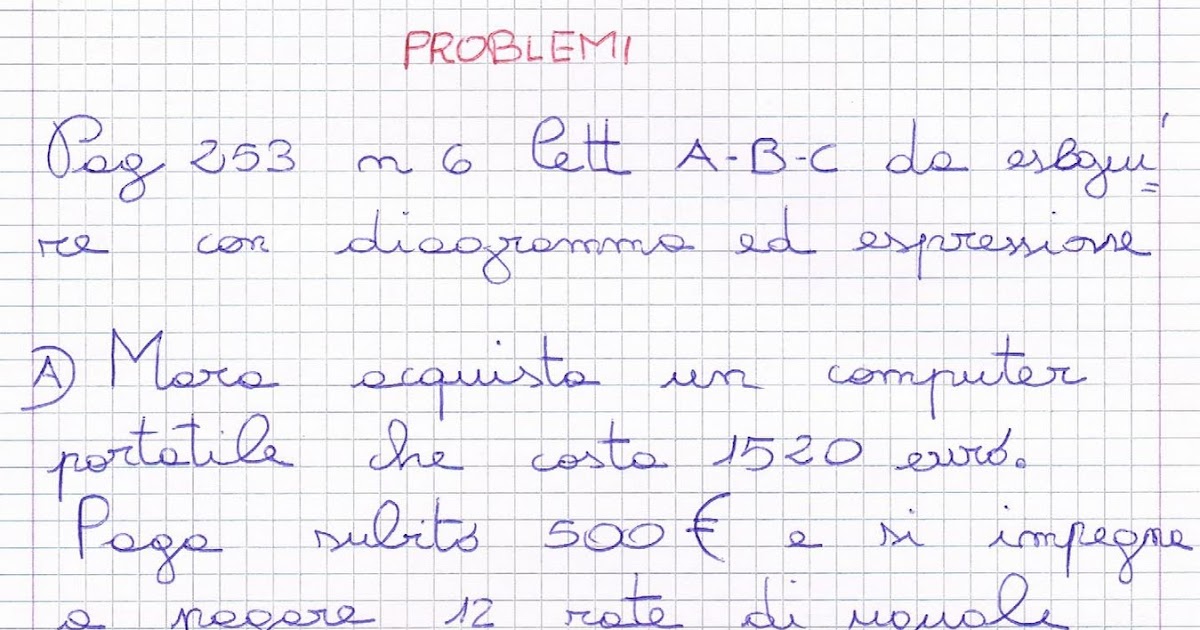 PROBLEMI
Pag 253 n 6 lett A-B-C da esegui=
re con diagramma ed espressione
A) Mara acquista un computer
portatile che costa 1520 euro.
Paga subito 500 € e si impegna
a pagare 12 rate di uguale